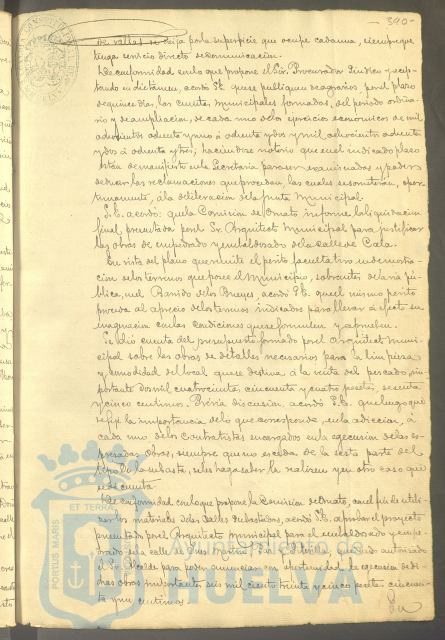 390
de vallas se exija por la superficie que ocupe cada una, siempre que
tenga servicio directo de comunicacion.
De conformidad con lo que propone el Sor. Procurador Sindico y acep-
tando su dictamen, acordó S.E. que se publiquen de agravios, por el plazo
de quince dias, las cuentas municipales formadas, del periodo ordina-
rio y de ampliacion, de cada uno de los ejercicios economicos de mil
ochocientos ochenta y uno a ochenta y dos y mil ochocientos ochenta
y dos á ochenta y tres, haciendose notorio que en el indicado plazo
están de manifiesto en la Secretaria para ser examinadas y poder
deducir las reclamaciones que procedan las cuales se someterán, opor-
tunamente, a la deliberacion de la Junta Municipal.
S.E. acordó: que la Comision de Ornato informe la liquidacion
final presentada por el Sr. Arquitecto Municipal para justificar
las obras de empedrado y embaldosado de la calle de Cala.
En vista del plano que remite el perito facultativo en demostra-
cion de los terrenos que posee el Municipio, sobrantes de la via pú-
blica, en el Barrido de los acordó S.E. que el mismo perito
proceda al aprecio de los terrenos indicados para llevar á efecto su
enagenacion en las condiciones que se formulen y aprueben.
Se dió cuenta del presupuesto formado por el Arquitecto Muni-
cipal sobre las obras de detalles necesarios para la limpieza
y comodidad del local que se destina á la venta del pescado, im-
portante dos mil cuatrocientas, cincuenta y cuatro pesetas, sesenta
y cinco centimos. Prévia discusion, acordó S.E. que luego que
se fije la importancia de lo que corresponde, en la adiccion, á
cada uno de los Contratistas encargados en la ejecucion de las ex-
presadas obras, siempre que no esceda de la sesta parte del
tipo de la subasta, se les haga saber la realizen y en otro caso que
se dé cuenta.
De conformidad con lo que propone la Comision de Ornato, con el fin de utili-
zar los materiales de las calles subastadas, acordó S.E. aprobar el proyecto
presentado por el Arquitecto municipal para el embaldosado y empe-
drado de la calle autorizado
el Sr. Alcalde para poder anunciar con oportunidad la ejecucion de di-
chas obras importantes seis mil ciento treinta y cinco pesetas cincuen-
ta y un centimos.
En
PORTUS MARIS ET TERRAE
Ayuntamiento de
HUELVA